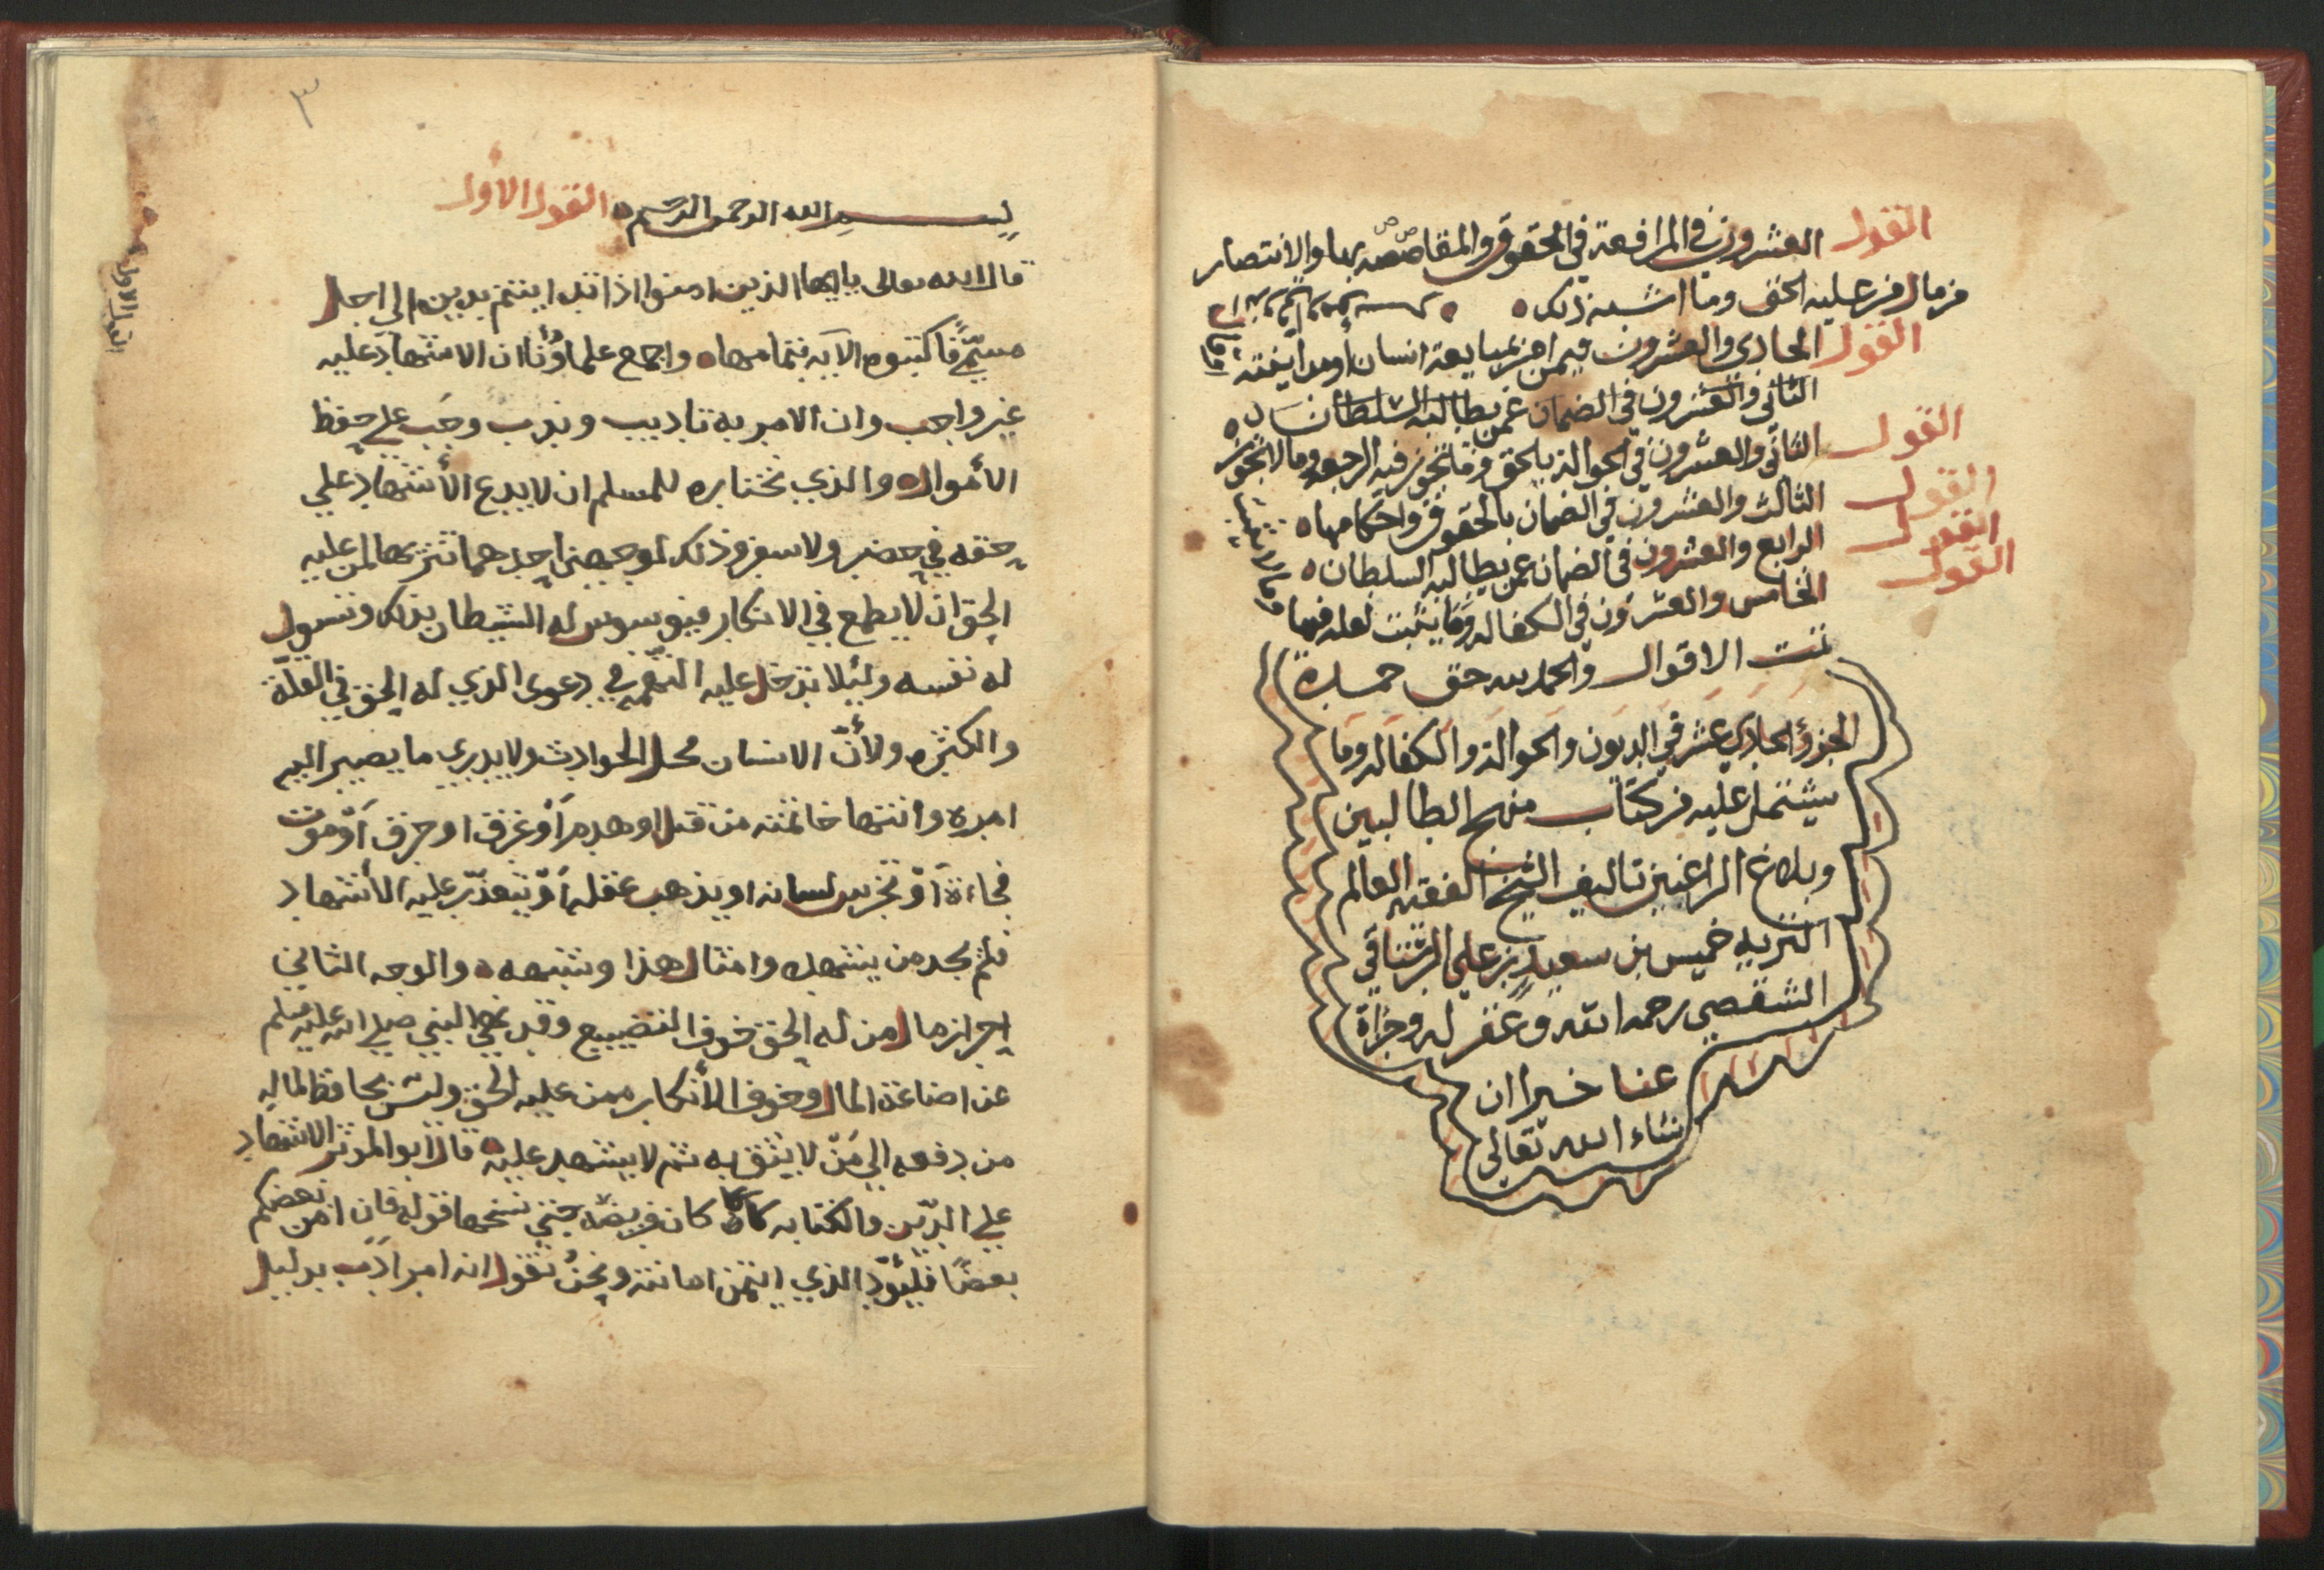 القول العشرون في المرافعة في الحقوق والمقاصصه بها والانتصار
من مال من عليه الحق وما اشبه ذلك
القول الحادي والعشرون فيمن امر بمبايعة انسان أو مداينته
الثاني والعشرون في الضمان عمن يطالبه السلطان
القول الثاني والعشرون في الحوالة بالحق وما تجوز فيه الرجعه وما لا تجوز
القول الثالث والعشرون في الضمان بالحقوق واحكامها
القول الرابع والعشرون في الضمان عمن يطالبه السلطان
القول الخامس والعشرون في الكفاله وما يثبت لعله فيها
وما لا يثبت
تمت الاقوال والحمد لله حق حمده
الجزؤ الحادي عشر في الديون والحوالة والكفاله وما
يشتمل عليه من كتاب منهج الطالبين
وبلاغ الراغبين تاليف الشيخ الفقيه العالم
النزيه خميس بن سعيد بن علي الرستاقي
الشقصي رحمه الله وغفر له وجزاه
عنا خيرا ان
شاء الله تعالى
٣
بسم الله الرحمن الرحيم القول الأول
قال الله تعالى يا ايها الذين امنوا اذا تداينتم بدين الى اجل
مسمًّى فاكتبوه الآيه بتمامها واجمع علماؤنا ان الاشهاد عليه
غير واجب وان الامر به تاديب وندب وحب على حفظ
الأموال والذي نختاره للمسلم ان لا يدع الأشهاد على
حقه في حضر ولا سفر وذلك لوجهين احدهما تنزيها لمن عليه
الحق ان لا يطمع في الانكار فيوسوس له الشيطان بذلك وتسول
له نفسه ولئلا تدخل عليه التهمه في دعوى الذي له الحق في القلّة
والكثره ولأنّ الانسان محل الحوادث ولا يدري ما يصير اليه
امره وانتها خاتمته من قتل او هدم أو غرق او حرق أو موت
فجاءة أو تخرس لسانه او يذهب عقله أو يتعذّر عليه الأشهاد
فلم يجد من يشهده وامثال هذا وشبهه والوجه الثاني
احراز مال من له الحق خوف التضييع وقد نهى النبي صلى الله عليه وسلم
عن اضاعة المال وخوف الأنكار ممن عليه الحق وليس بحافظ لماله
من دفعه الى مَنْ لا يثق به ثم لا يشهد عليه قال ابو المؤثر الاشهاد
على الدّين والكتابه كان فريضه حتى نسخها قوله فان امن بعضكم
بعضًا فليؤدّ الذي ائتمن امانته ونحنُ نقول انه امر ادب بدليل
القول الاول